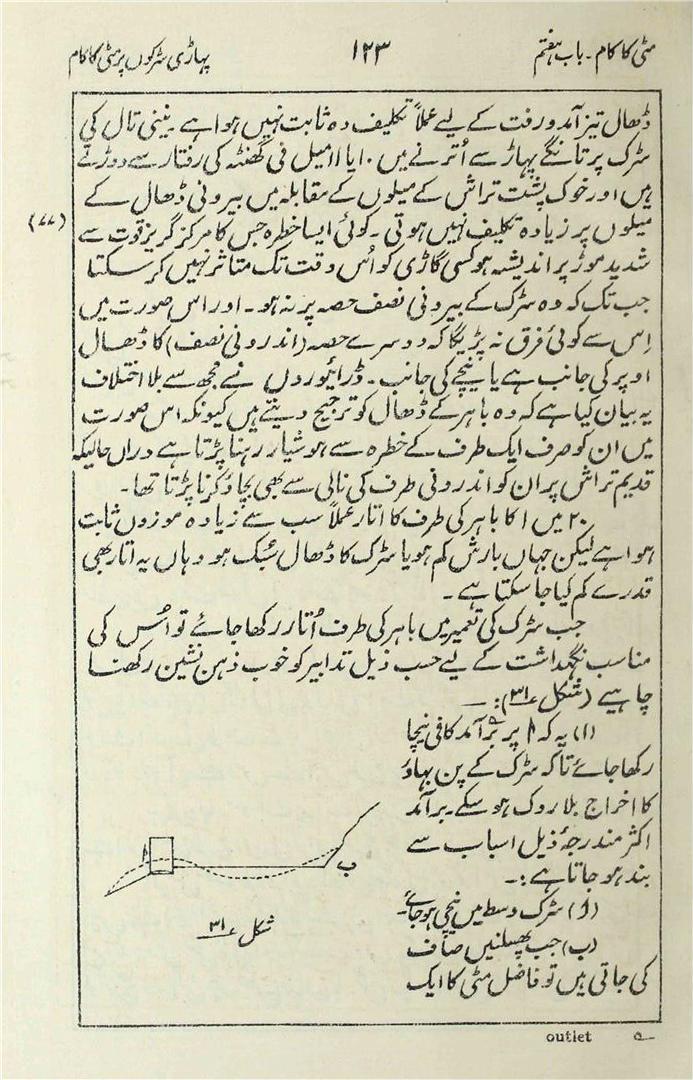 مٹی کا کام - باب ہفتم
۱۲۳
پہاڑی سڑکوں پر مٹی کا کام
ڈھال تیز آمد و رفت کے لیے عملاً تکلیف دہ ثابت نہیں ہوا ہے - نینی تال کی
سڑک پر تانگے پہاڑ سے اُترنے میں ۱۰ یا ۱۱ میل فی گھنٹہ کی رفتار سے دوڑتے
ہیں اور خوک پشت تراش کے میلوں کے مقابلہ میں بیرونی ڈھال کے
میلوں پر زیادہ تکلیف نہیں ہوتی - کوئی ایسا خطرہ جس کا مرکز گریز قوت سے
(۷۷)
شدید موڑ پر اندیشہ ہو کسی گاڑی کو اُس وقت تک متاثر نہیں کر سکتا
جب تک کہ وہ سڑک کے بیرونی نصف حصہ پر نہ ہو - اور اس صورت میں
اِس سے کوئی فرق نہ پڑیگا کہ دوسرے حصہ (اندرونی نصف) کا ڈھال
اوپر کی جانب ہے یا نیچے کی جانب - ڈرائیوروں نے مجھ سے بلا اختلاف
یہ بیان کیا ہے کہ وہ باہر کے ڈھال کو ترجیح دیتے ہیں کیونکہ اس صورت
میں ان کو صرف ایک طرف کے خطرہ سے ہوشیار رہنا پڑتا ہے دراں حالیکہ
قدیم تراش پر ان کو اندرونی طرف کی نالی سے بھی بچاؤ کرنا پڑتا تھا -
۲۰ میں ۱ کا باہر کی طرف کا اتار عملاً سب سے زیادہ موزوں ثابت
ہوا ہے لیکن جہاں بارش کم ہو یا سڑک کا ڈھال سُبک ہو وہاں یہ اتار بھی
قدرے کم کیا جا سکتا ہے -
جب سڑک کی تعمیر میں باہر کی طرف اُتار رکھا جائے تو اُس کی
مناسب نگہداشت کے لیے حسب ذیل تدابیر کو خوب ذہن نشین رکھنا
چاہیے (شکل ۳۱): —
(۱) یہ کہ ا پر برآمدہ کافی نیچا
رکھا جائے تاکہ سڑک کے پن بہاؤ
کا اخراج بلا روک ہو سکے - برآمد
اکثر مندرجۂ ذیل اسباب سے
بند ہو جاتا ہے :-
(ا) سڑک وسط میں نیچی ہو جائے -
(ب) جب پھسلنیں صاف
کی جاتی ہیں تو فاضل مٹی کا ایک
ا
ب
شکل ۳۱
ہ outlet